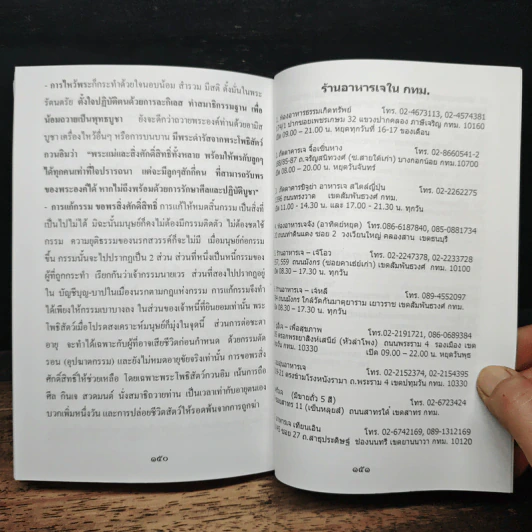 - การไหว้พระก็กระทำด้วยใจนอบน้อม สำรวม มีสติ ตั้งมั่นในพระ
รัตนตรัย ตั้งใจปฏิบัติตนด้วยการละกิเลส ทำสมาธิกรรมฐาน เพื่อ
น้อมถวายเป็นพุทธบูชา ยังจะดีกว่าถวายพระองค์ท่านด้วยอามิส
บูชา เครื่องไหว้อื่นๆ หรือการบนบาน มีพระดำรัสจากพระโพธิสัตว์
กวนอิมว่า "พระแม่และสิ่งศักดิ์สิทธิ์ทั้งหลาย พร้อมให้พรกับลูกๆ
ได้ทุกคนเท่าที่ใจปรารถนา แต่จะมีลูกๆสักกี่คน ที่สามารถรับพร
ของพระองค์ได้ หากไม่ถึงพร้อมด้วยการรักษาศีลและปฏิบัติบูชา"
- การแก้กรรม ขอพรสิ่งศักดิ์สิทธิ์ การแก้ให้หมดสิ้นกรรม เป็นสิ่งที่
เป็นไปไม่ได้ มิฉะนั้นมนุษย์ก็คงไม่ต้องมีกรรมติดตัว ไม่ต้องชดใช้
กรรม ความยุติธรรมของนรกสวรรค์ก็จะไม่มี เมื่อมนุษย์ก่อกรรม
ขึ้น กรรมนั้นจะไปปรากฏเป็น 2 ส่วน ส่วนที่หนึ่งเป็นหนี้กรรมของ
ผู้ที่ถูกกระทำ เรียกกันว่าเจ้ากรรมนายเวร ส่วนที่สองไปปรากฏอยู่
ใน บัญชีบุญ-บาปในเมืองนรกตามกฎแห่งกรรม การแก้กรรมจึงทำ
ได้เพียงให้กรรมเบาบางลง ในส่วนของเจ้าหนี้ที่ยินยอมเท่านั้น พระ
โพธิสัตว์เมื่อโปรดสงเคราะห์มนุษย์ก็มุ่งในจุดนี้ ส่วนการต่อชะตา
อายุ จะทำได้เฉพาะกับผู้ที่อาจเสียชีวิตก่อนกำหนด ด้วยกรรมตัด
รอน (อุปฆาตกรรม) และยังไม่หมดอายุขัยจริงเท่านั้น การขอพรสิ่ง
ศักดิ์สิทธิ์ให้ช่วยเหลือ โดยเฉพาะพระโพธิสัตว์กวนอิม เน้นการถือ
ศีล กินเจ สวดมนต์ นั่งสมาธิถวายท่าน เป็นเวลาเท่ากับอายุตนเอง
บวกเพิ่มหนึ่งวัน และการปล่อยชีวิตสัตว์ให้รอดพ้นจากการถูกฆ่า
๑๕๐
ร้านอาหารเจใน กทม.
ห้องอาหารธรรมเกิดทรัพย์ โทร. 02-4673113, 02-4574381
ปากซอยเพชรเกษม 32 แขวงปากคลอง ภาษีเจริญ กทม. 10160
เปิด 09.00 – 21.00 น. หยุดทุกวันที่ 16-17 ของเดือน
ภัตตาคารเจ จื่อเซี่นหาง โทร. 02-8660541-2
85-87 ถ.จรัญสนิทวงศ์ (ข.สายใต้เก่า) บางกอกน้อย กทม. 10700
เปิด 08.00 – 20.00 น. หยุดวันจันทร์
ภัตตาคารชิฐย่า อาหารเจ สไตล์ญี่ปุ่น โทร. 02-2262275
ถนนทรงวาด เขตสัมพันธวงศ์ กทม.
เปิด 11.00 - 14.30 น. และ 17.00 - 21.30 น. ทุกวัน
ห้องอาหารเจจัง (อาทิตย์หยุด) โทร.086-6187840, 085-0881734
ถนนท่าดินแดง ซอย 2 วงเวียนใหญ่ คลองสาน เขตธนบุรี
ร้านอาหารเจ – เจ๊โอว โทร. 02-2247378, 02-2233728
57,559 ถนนมังกร (ซอยคาเธ่ย์เก่า) เขตสัมพันธวงศ์ กทม. 10100
เปิด 08.30 – 17.30 น. ทุกวัน
ร้านอาหารเจ – เจ๊หลี โทร. 089-4552097
ถนนมังกร ใกล้วัดกันมาตุยาราม เยาวราช เขตสัมพันธวงศ์ กทม.
เปิด 08.30 – 17.30 น. ทุกวัน
เพื่อสุขภาพ โทร.02-2191721, 086-0689384
ตรอกพระยาสิงห์เสนีย์ (หัวลำโพง) ถนนพระราม 4 รองเมือง เขต
กทม 10330 เปิด 09.00 – 22.00 น. หยุดวันพุธ
อาหารเจ โทร. 02-2152374, 02-2154395
ตรงข้ามโรงหนังรามา ถ.พระราม 4 เขตปทุมวัน กทม. 10330
(มีขายถั่ว 5 สี) โทร. 02-6723424
สาทร 11 (เซ็นหลุยส์) ถนนสาทรใต้ เขตสาทร กทม.
อาหารเจ เทียนเอิน โทร. 02-6742169, 089-1312169
ซอย 27 ถ.สาธุประดิษฐ์ ช่องนนทรี เขตยานนาวา กทม. 10120
๑๕๑